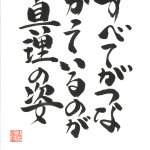 すべてがつな
がているのが
真理の姿